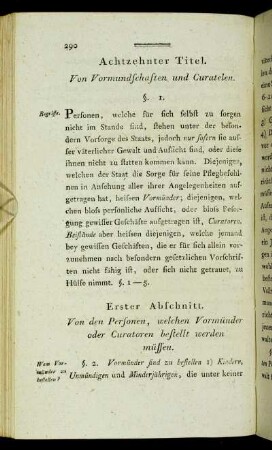 290
Achtzehnter Titel.
Von Vormundschaften und Curatelen.
§. 1.
Begriffe. Personen, welche für sich selbst zu sorgen
nicht im Stande sind, stehen unter der beson-
dern Vorsorge des Staats, jedoch nur sofern sie aus-
ser väterlicher Gewalt und Aufsicht sind, oder diese
ihnen nicht zu statten kommen kann. Diejenigen,
welchen der Staat die Sorge für seine Pflegbefohl-
nen in Ansehung aller ihrer Angelegenheiten auf-
getragen hat, heissen Vormünder; diejenigen, wel-
chen bloss persönliche Aufsicht, oder bloss Besor-
gung gewisser Geschäfte aufgetragen ist, Curatoren.
Beistände aber heissen diejenigen, welche jemand
bey gewissen Geschäften, die er für sich allein vor-
zunehmen nach besondern gesetzlichen Vorschriften
nicht fähig ist, oder sich nicht getrauet, zu
Hülfe nimmt. §. 1—5.
Erster Abschnitt.
Von den Personen, welchen Vormünder
oder Curatoren bestellt werden
müssen.
Wem Vor- §. 2. Vormünder sind zu bestellen 1) Kindern,
münder zu Unmündigen und Minderjährigen, die unter keiner
bestellen?